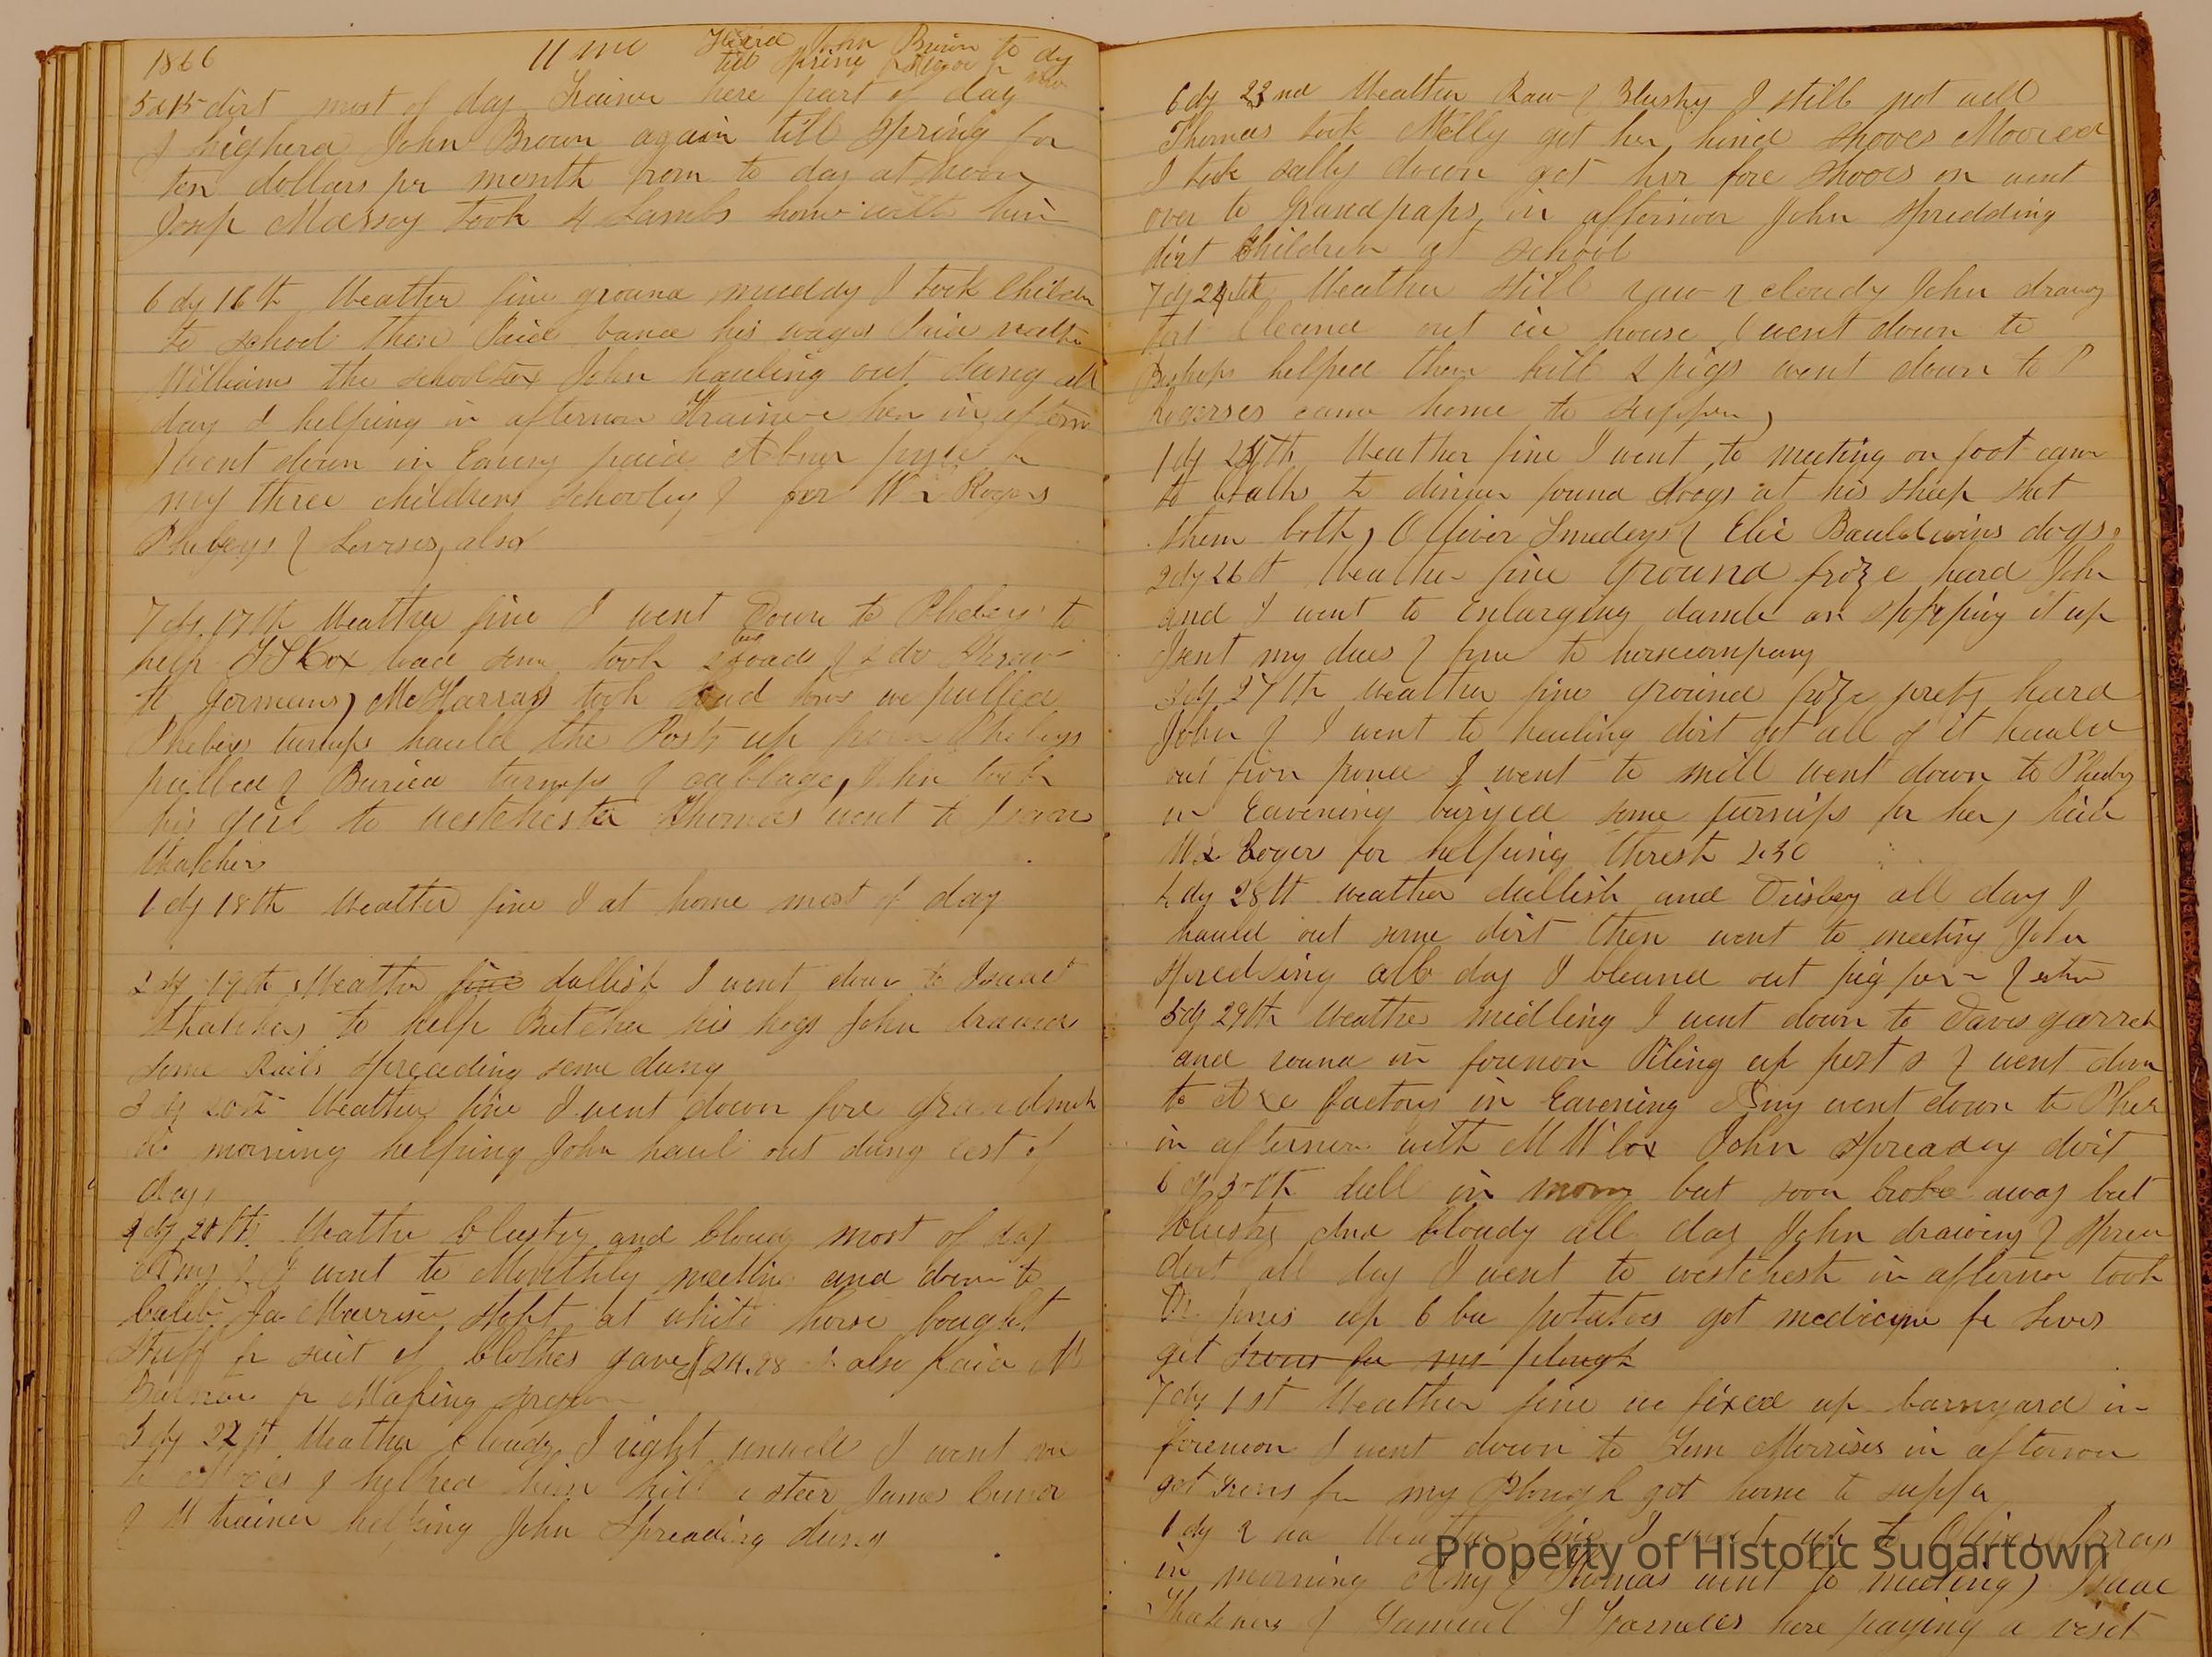 1866 11 mo Hired John Brown to dy
till Spring
5 d 15 dirt most of day Trainer here part of day
I highera John Brown again till Spring for
ten dollars pr month from to day at noon
Josep Massey took 4 Lambs home with him
6 dy 16th Weather fine ground muddy I took Childn
to school then Paid his wages Paid
Williams the schooltax John hauling out dung all
day I helping in afternoon Trainer her in aftern
I went down in Eaveng paid Abner pyle
my three childrens schooling & for Wm Rogers
Phebeys & also
7 dy 17th Weather fine I went Down to Phebeys to
help took 2 loads & 2 do Straw
to Germans, McHarrah took sows we pulled
Phebeys turnips hauld the Posts up from Phebeys
pulled & Buried turnips & cabbage, John took
his girl to westchester Thomas went to Isaac
thatchers
1 dy 18th Weather fine I at home most of day
2 dy 19th Weather fine dullish I went down to Isaac
thatchers to help Butcher his hogs John drawed
some Rails spreading some dung
3 dy 20th Weather fine I went down fore grandmoth
in morning helping John haul out dung rest of
day,
4 dy 21st Weather blustry and cloudy most of day
Amy & I went to Monthly meeting and down to
stopt at white horse bought
stuff for suit of clothes gave $24.28 also paid
for Making
5 dy 22 Weather cloudy I right unwell I went over
to & helped him kill a steer James
& W trainer helping John Spreading dung
6 dy 23 nd Weather Raw & Blusky I still not well
Thomas took Nelly got her hind shoes Mooved
I took sally down got her fore shooes on went
over to Grandpaps in afternoon John spredding
dirt Children at school
7 dy 24th Weather still raw & cloudy John drawg
dirt Cleand out ice house I went down to
Bishops helped them kill 2 pigs went down to P
Rogerses came home to supper,
1 dy 25th Weather fine I went to meeting on foot cam
to to dinner found doogs at his sheep shot
them both, Olliver Smedeys & Elie Bauldwins dogs.
2 dy 26 t Weather fine ground froze heard John
and I went to Enlarging damb or stopping it up
Sent my dues & fine to horsecompany
3 dy 27th weather fine ground froze prety hard
John & I went to hauling dirt got all of it hauld
out from pond I went to mill went down to Pheby
in Eavening buryed some turnips for her, paid
Wm Roger for helping thresh 2.30
4 dy 28th weather dullish and Drisley all day I
hauld out some dirt then went to meeting John
spredding all day I cleand out pig pen &
5 dy 29th Weather midling I went down to Daves garret
and round in forenoon Piling up posts & went down
to Axe factory in Eavening Amy went down to Pheb
in afternoon with M W Cox John spreadng dirt
6 dy 30th dull in morng but soon broke away but
blusky and Cloudy all day John drawing & spren
dirt all day I went to westchest in afternoon took
Dr Jones up 6 bu potatoes got medicine fr
got Irons for my plough
7 dy 1 st Weather fine we fixed up barnyard in
forenoon I went down to Morrises in afternoon
got Irons for my Plough got home to supper
1 dy 2 nd Weather fine I went up to Oliver
in morning Amy & Thomas went to meeting, Isaac
Thatchers & Samuel here paying a visit
Property of Historic Sugartown